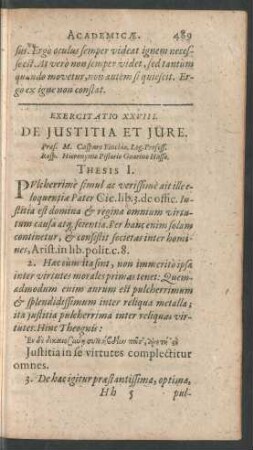 ACADEMICÆ. 489
sus. Ergo oculus semper videat ignem neces-
se est. At verò non semper videt, sed tantùm
quando movetur, non autem si quiescit. Er-
go ex igne non constat.
EXERCITATIO XXVIII.
DE JUSTITIA ET JURE.
Præs. M. Casparo Log. Profess.
Resp. Hieronymo Pistorio Hasso.
THESIS I.
PUlcherrimè simul ac verissimè ait ille e-
loquentiæ Pater Cic. lib. 3. de offic. Iu-
stitia est domina & regina omnium virtu-
tum causa atq; serentia. Per hanc enim solam
continetur, & consistit societas inter homi-
nes, Arist. in lib. polit. c. 8.
2. Hæc cùm ita sint, non immeritò ipsa
inter virtutes morales primas tenet: Quem-
admodum enim aurum est pulcherrimum
& splendidissimum inter reliqua metalla;
ita justitia pulcherrima inter reliquas vir-
tutes. Hinc Theognis:
Ἐν δὲ δικαιοσύνῃ
Justitia in se virtutes complectitur
omnes.
3. De hac igitur præstantissima, optima,
Hh 5 pul-